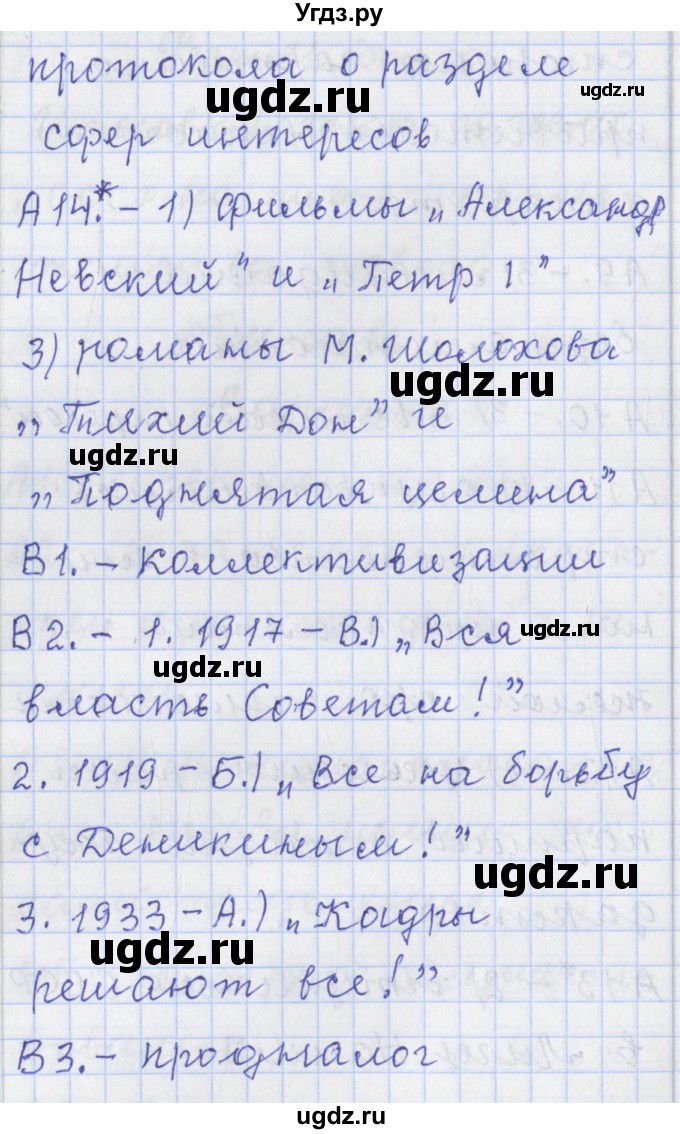 Угдз.ру
протокола о разделе
ugdz.ru
ugdz.ru
сфер интересов
А14.* – 1) фильмы „Александр
Невский" и „Петр 1"
3) романы М. Шолохова
ugdz.ru
„Тихий Дон" и
ugdz.ru
„Поднятая целина"
В1. – Коллективизации
В2. – 1. 1917 – В.) „Вся
ugdz.ru
ugdz.ru
власть Советам!"
2. 1919 – Б.) „Все на борьбу
с Деникиным!"
ugdz.ru
3. 1933 – А.) „Кадры
ugdz.ru
решают все!"
В3. – продналог
ugdz.ru